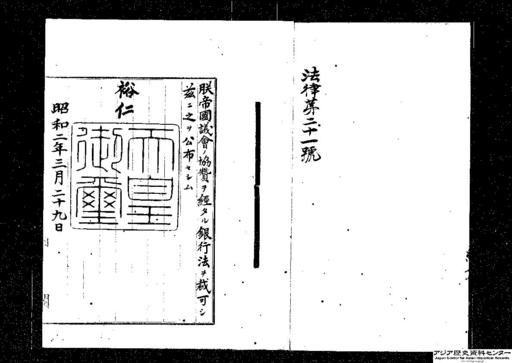 法律第二十一號
朕帝國議會ノ協贊ヲ經タル銀行法ヲ裁可シ
茲ニ之ヲ公布セシム
裕仁
天皇御璽
昭和二年三月二十九日
アジア歴史資料センター
Japan Center for Asian Historical Records